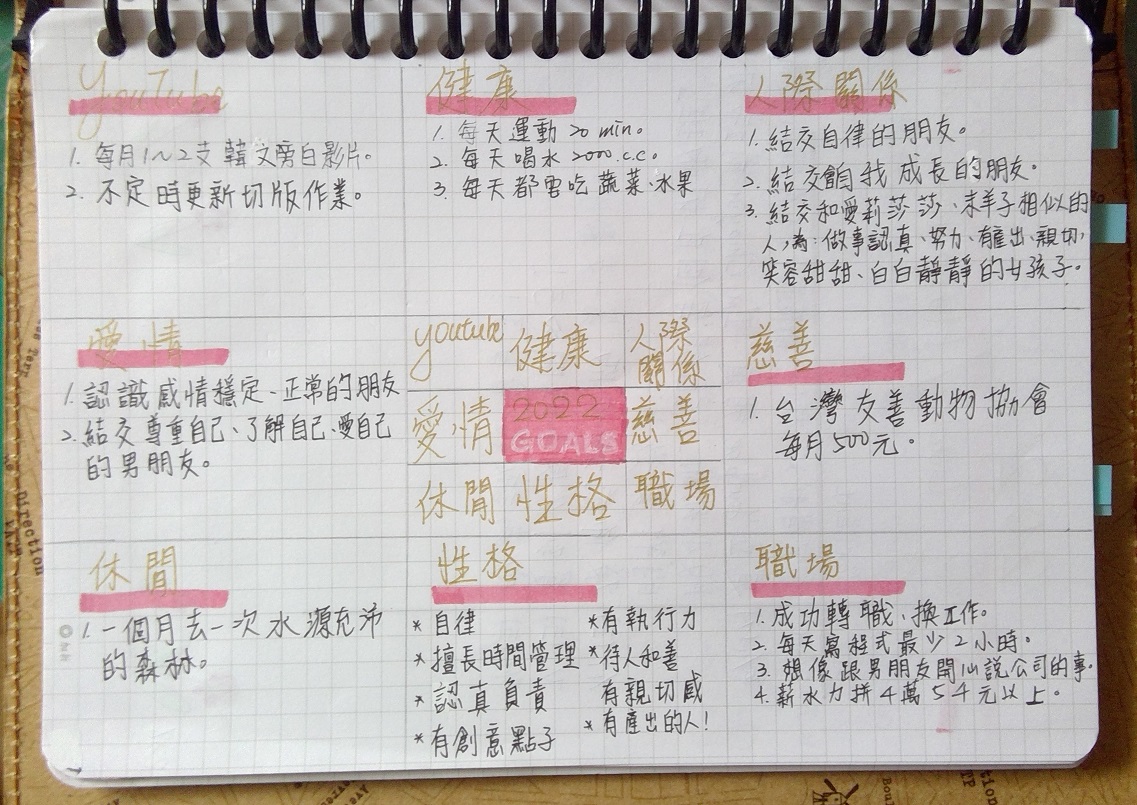 YouTube
1. 每月1～2支 韓文旁白影片。
2. 不定時更新切版作業。
健康
1. 每天運動 20 min。
2. 每天喝水 2000.c.c.。
3. 每天都要吃蔬菜、水果
人際關係
1. 結交自律的朋友。
2. 結交陪我成長的朋友。
3. 結交和愛莉莎莎、末羊子相似的
人,為:做事認真、努力、有產出、親切,
笑容甜甜、白白靜靜的女孩子。
愛情
1. 認識感情穩定、正常的朋友
2. 結交尊重自己、了解自己、愛自己
的男朋友。
youtube 健康 人際
關係
愛情 2022
GOALS 慈善
休閒 性格 職場
慈善
1. 台灣友善動物協會
每月500元。
休閒
1. 一個月去一次水源充沛
的森林。
性格
* 自律
* 擅長時間管理
* 認真負責
* 有創意點子
* 有執行力
* 待人和善
有親切感
* 有產出的人!
職場
1. 成功轉職、換工作。
2. 每天寫程式最少2小時。
3. 想像跟男朋友開心說公司的事。
4. 薪水力拼4萬5千元以上。
Direction